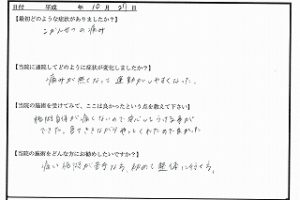 日付 平成 年 10月 21日
【最初どのような症状がありましたか？】
こかんせつの痛み
【当院に通院してどのように症状が変化しましたか？】
痛みが無くなって運動がしやすくなった。
【当院の施術を受けてみて、ここは良かったという点を教えて下さい】
施術自体が痛くないので安心してうける事が
できた。
【当院の施術をどんな方にお勧めしたいですか？】
痛い施術が苦手な方、初めて整体に行く方。